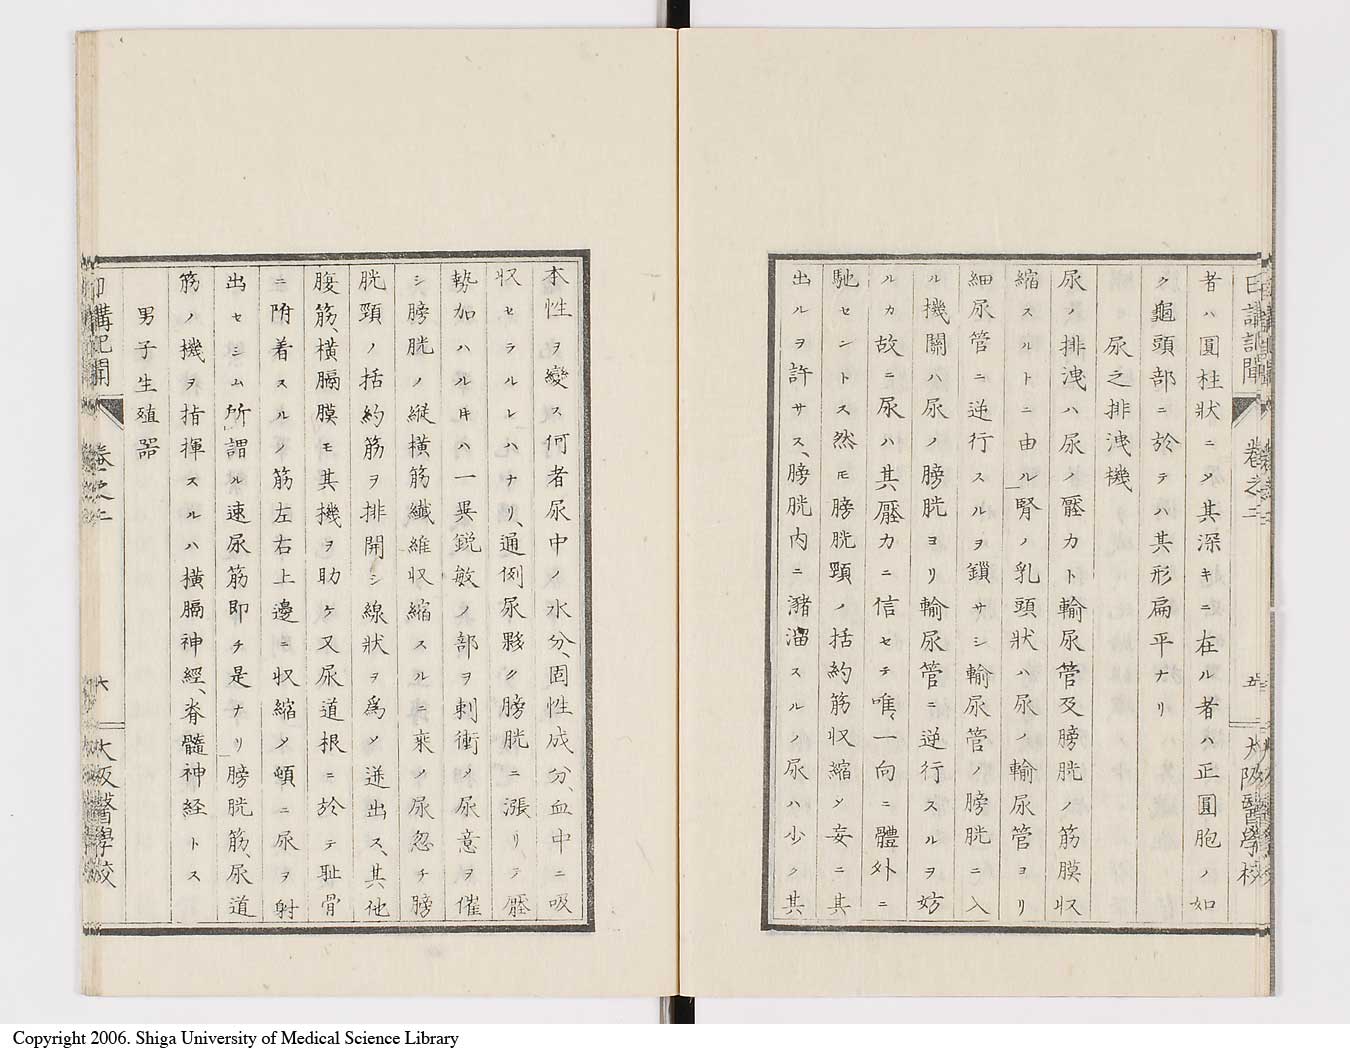 日講記聞 卷之二 五 大阪醫學校
者ハ圓柱狀ニメ其深キニ在ル者ハ正圓胞ノ如
ク龜頭部ニ於テハ其形扁平ナリ
尿之排洩機
尿ノ排洩ハ尿ノ壓力ト輸尿管及膀胱ノ筋膜収
縮スルトニ由ル腎ノ乳頭狀ハ尿ノ輸尿管ヨリ
細尿管ニ逆行スルヲ鎖サシ輸尿管ノ膀胱ニ入
ル機關ハ尿ノ膀胱ヨリ輸尿管ニ逆行スルヲ妨
ルカ故ニ尿ハ其壓力ニ信セテ唯、一向ニ體外ニ
馳セントス然モ膀胱頸ノ括約筋収縮メ妄ニ其
出ルヲ許サス、膀胱内ニ瀦溜スルノ尿ハ少ク其
本性ヲ變ス何者尿中ノ水分、固性成分、血中ニ吸
収セラルレハナリ、通例尿夥ク膀胱ニ漲リテ壓
勢加ハル㆒キハ一異鋭敏ノ部ヲ刺衝メ尿意ヲ催
シ膀胱ノ縦横筋纖維収縮スルニ乘メ尿忽チ膀
胱頸ノ括約筋ヲ排開シ線狀ヲ為メ迸出ス、其他
腹筋、横膈膜モ其機ヲ助ケ又尿道根ニ於テ耻骨
ニ附着スルノ筋左右上邊ニ収縮メ頓ニ尿ヲ射
出セシム所謂ル速尿筋即チ是ナリ膀胱筋、尿道
筋ノ機ヲ指揮スルハ横膈神經、脊髓神経トス
男子生殖噐
日講記聞 卷之二 六 大阪醫學校
Copyright 2006. Shiga University of Medical Science Library